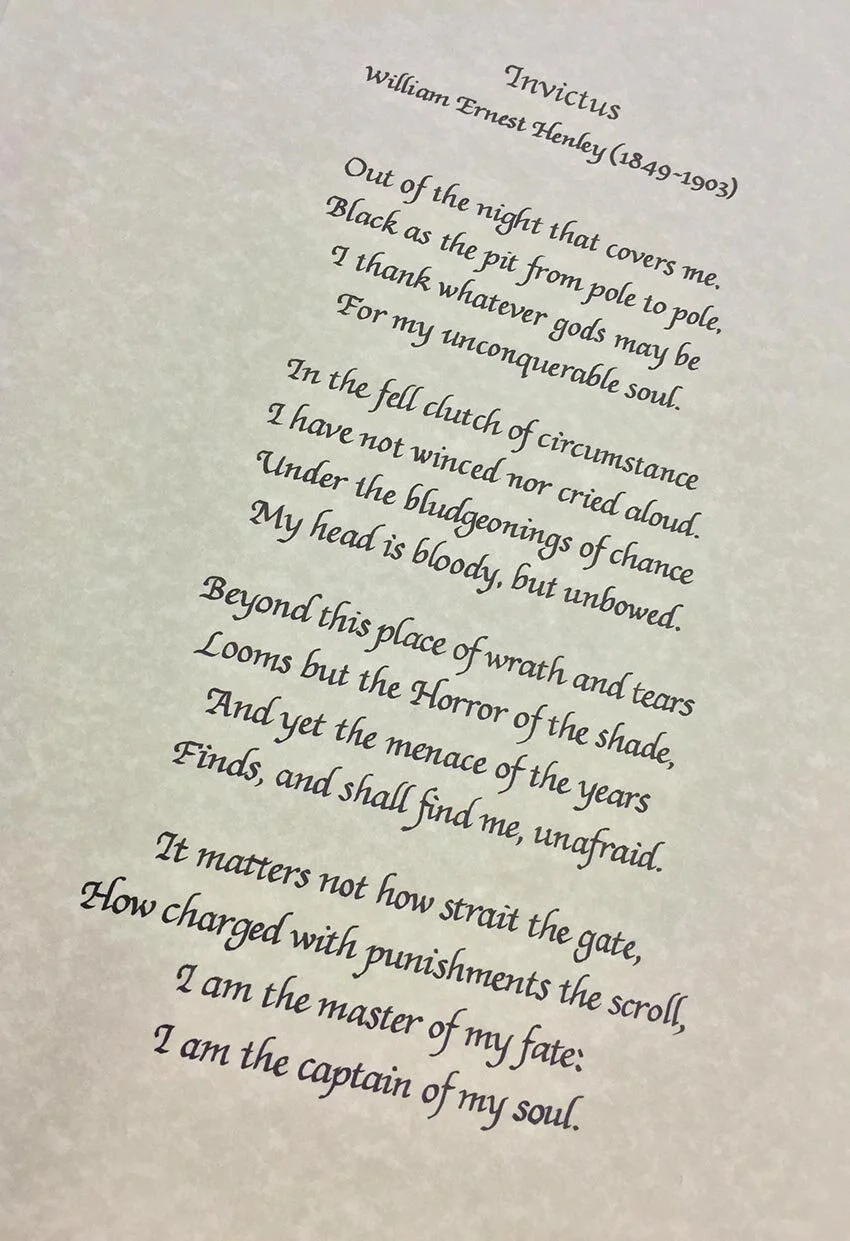 Invictus
William Ernest Henley (1849-1903)
Out of the night that covers me.
Black as the pit from pole to pole,
I thank whatever gods may be
For my unconquerable soul.
In the fell clutch of circumstance
I have not winced nor cried aloud.
Under the bludgeonings of chance
My head is bloody, but unbowed.
Beyond this place of wrath and tears
Looms but the Horror of the shade,
And yet the menace of the years
Finds, and shall find me, unafraid.
It matters not how strait the gate,
How charged with punishments the scroll,
I am the master of my fate:
I am the captain of my soul.